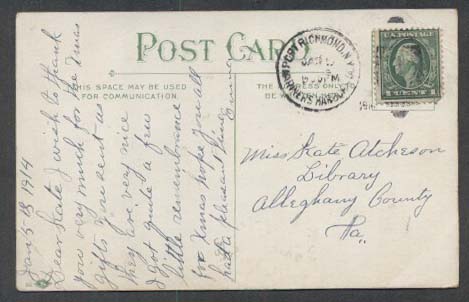 POST CARD
THIS SPACE MAY BE USED
FOR COMMUNICATION.
Jan 5th 1914
Dear Kate I wish to thank
you very much for the Xmas
gifts you sent us
they are very nice
I got quite a few
little remembrance
for Xmas hope you all
had a pleasant time
PORT RICHMOND, N.Y.
MARINERS HARBOR
1 CENT 1
Miss Kate Atcheson
Library
Alleghany County
Pa.